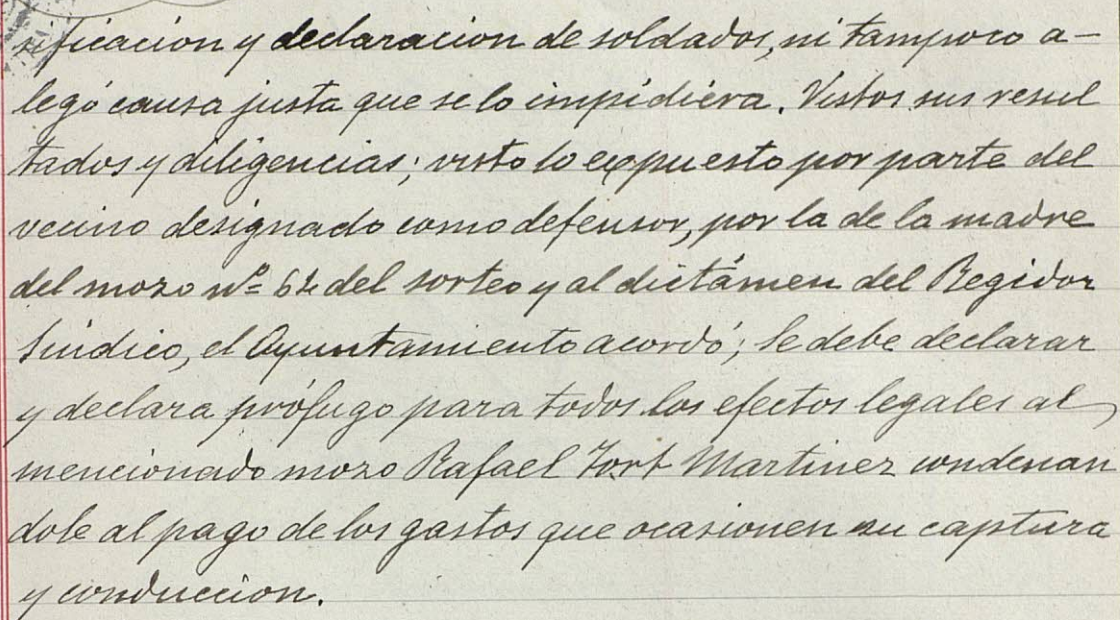 sificacion y declaracion de soldados, ni tampoco a-
legó causa justa que se lo impidiera. Vistos sus resul
tados y diligencias; visto lo expuesto por parte del
vecino designado como defensor, por la de la madre
del mozo nº 64 del sorteo y al dictámen del Regidor
Síndico, el Ayuntamiento acordó; Se debe declarar
y declara prófugo para todos los efectos legales al
mencionado mozo Rafael Fort Martinez condenan
dole al pago de los gastos que ocasionen su captura
y conduccion.